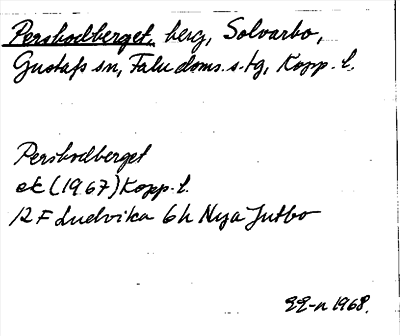 Persbodberget, berg, Solvarbo,
Gustafs sn, Falu doms.s.tg, Kopp. l.
Persbodberget
ek (1967) Kopp. l.
12 F Ludvika 6h Nya Jutbo
22-n 1968.